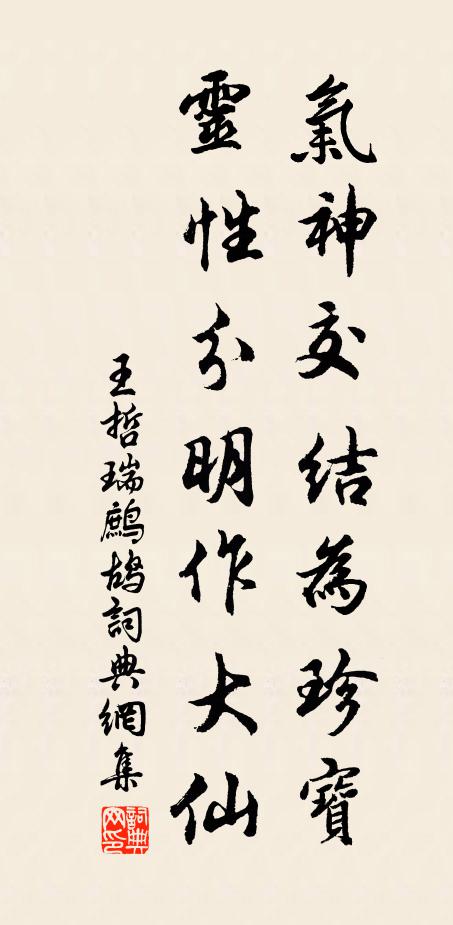 氣神交結為珍寶
靈性分明作大仙
王哲瑞鷓鴣詞典網集
詞典網印